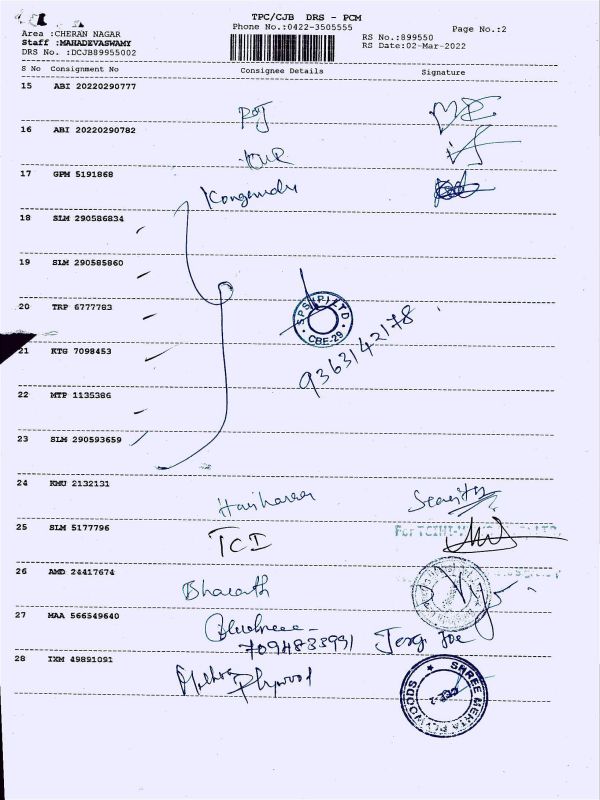 TPC/CJB DRS - PCM
Phone No.:0422-3505555
Page No.:2
Area :CHERAN NAGAR
Staff :MAHADEVASWAMY
DRS No. :DCJB89955002
RS No.:899550
RS Date:02-Mar-2022
S No Consignment No Consignee Details Signature
15 ABI 20220290777
16 ABI 20220290782
17 GPM 5191868
18 SLM 290586834
19 SLM 290585860
20 TRP 6777783
SPS (P) LTD
CBE-29
9363142178
21 KTG 7098453
22 MTP 1135386
23 SLM 290593659
24 KMU 2132131
Hariharan
25 SLM 5177796
TCI
26 AMD 24417674
Bharath
27 MAA 566549640
7094833991
28 IXM 49891091
Plywood
SHREE MEHTA PLYWOODS